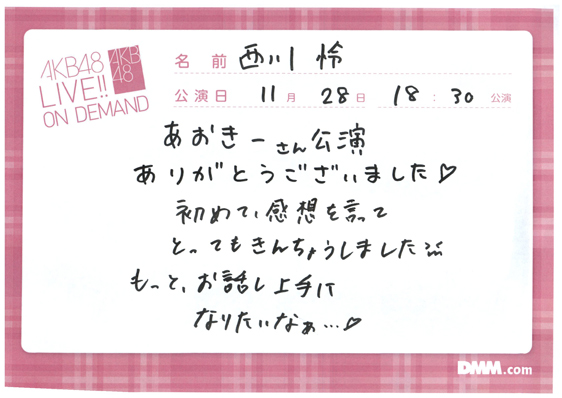 AKB48
LIVE!!
ON DEMAND
AKB
48
名前 西川 怜
公演日 11月 28日 18:30 公演
あおきーさん公演
ありがとうございました♡
初めて、感想を言って
とってもきんちょうしました
もっと、お話し上手に
なりたいなぁ…♡
DMM.com